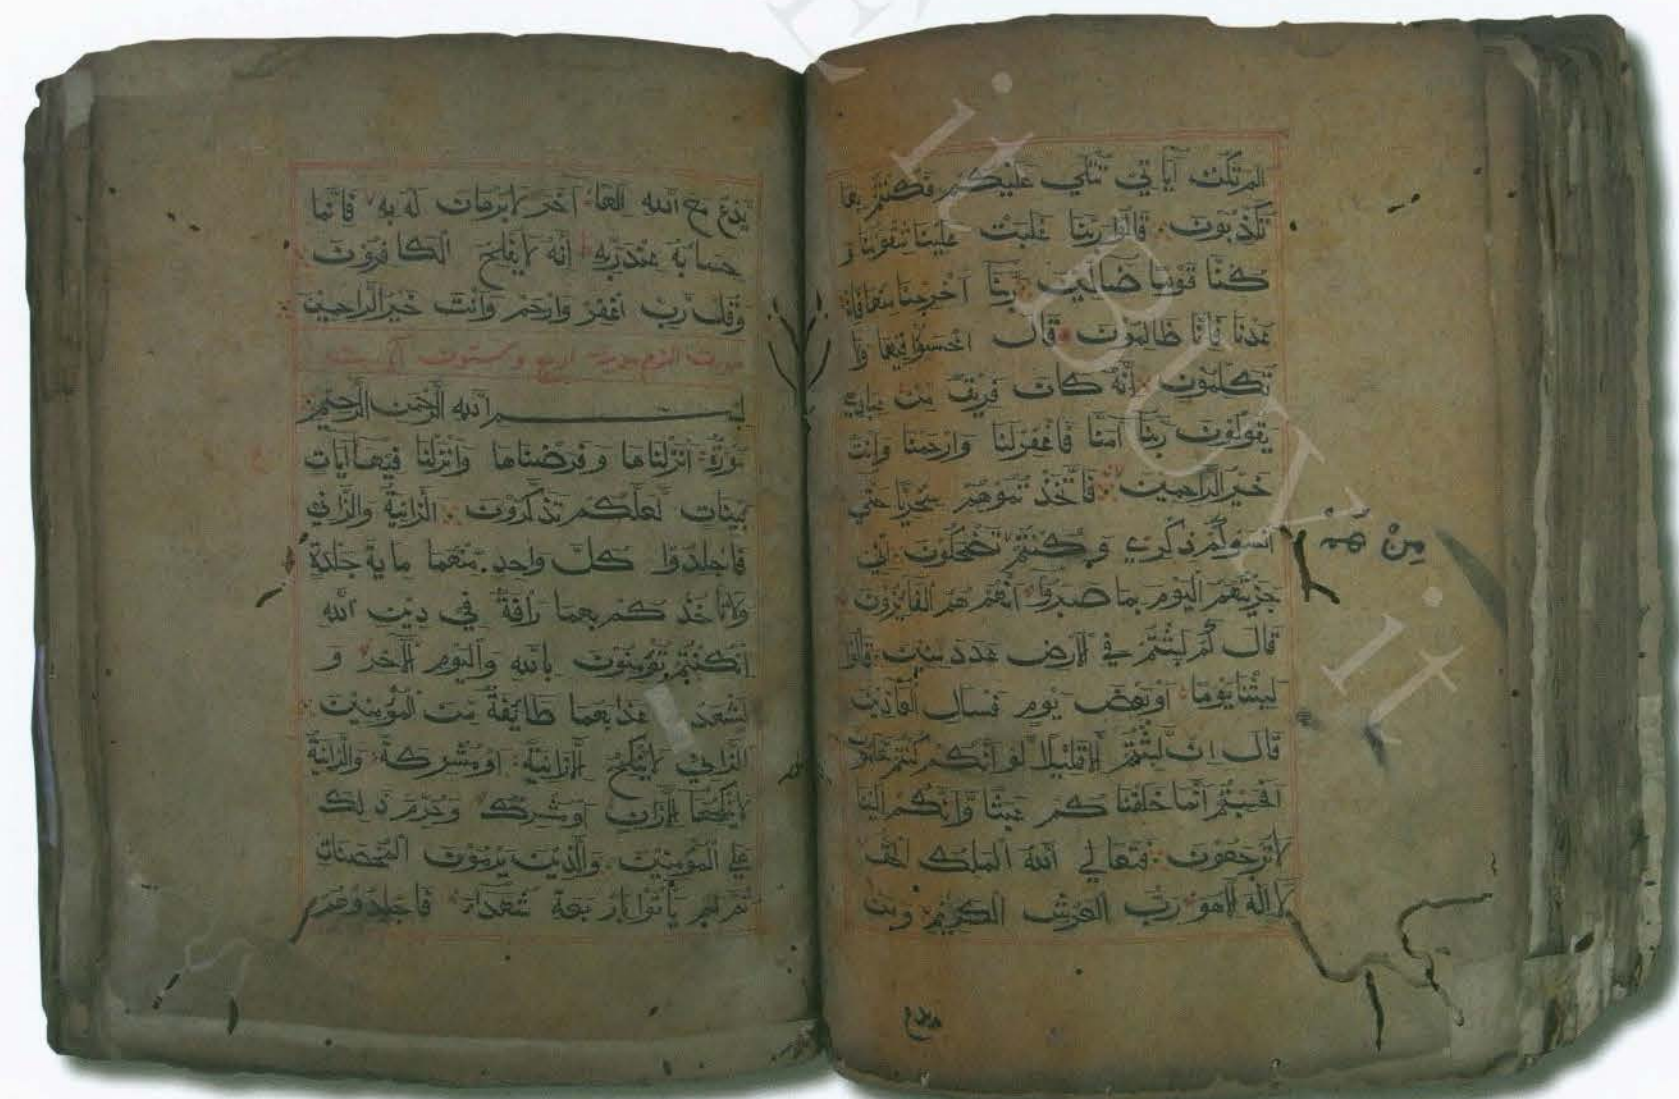 الم تكن آياتي تتلي عليكم فكنتم بها
تكذبون قالوا ربنا غلبت علينا شقوتنا و
كنا قوما ضالين ربنا اخرجنا منها فان
عدنا فانا ظالمون قال اخسؤا فيها ولا
تكلمون انه كان فريق من عبادي
يقولون ربنا آمنا فاغفرلنا وارحمنا وانت
خير الراحمين فاتخذ تموهم سخريا حتي
انسوكم ذكري وكنتم تضحكون اني
من هم
جزيتهم اليوم بما صبروا انهم هم الفايزون
قال كم لبثتم في الارض عدد سنين قالوا
لبثنا يوما او بعض يوم فسال العادين
قال ان لبثتم الا قليلا لو انكم كنتم تعلمون
افحسبتم انما خلقنا كم عبثا وانكم الينا
لا ترجعون فتعالي الله الملك الحق
لا اله الا هو رب العرش الكريم ومن
يدع مع الله الها آخر لا برهان له به فانما
حسابه عند ربه انه لا يفلح الكافرون
وقل رب اغفر وارحم وانت خير الراحمين
سورت النور مدنية اربع وستون آيت
بسم الله الرحمن الرحيم
سورة انزلناها وفرضناها وانزلنا فيها آيات
بينات لعلكم تذكرون الزانية والزاني
فاجلدوا كل واحد منهما ماية جلدة
ولا تاخذ كم بهما رافة في دين الله
ان كنتم تؤمنون بالله واليوم الآخر و
ليشهد عذابهما طايفة من المؤمنين
الزاني لا ينكح الا زانية او مشركة والزانية
لا ينكحها الا زان او مشرك وحرم ذلك
علي المؤمنين والذين يرمون المحصنات
ثم لم يأتوا بار بعة شهداء فاجلدوهم